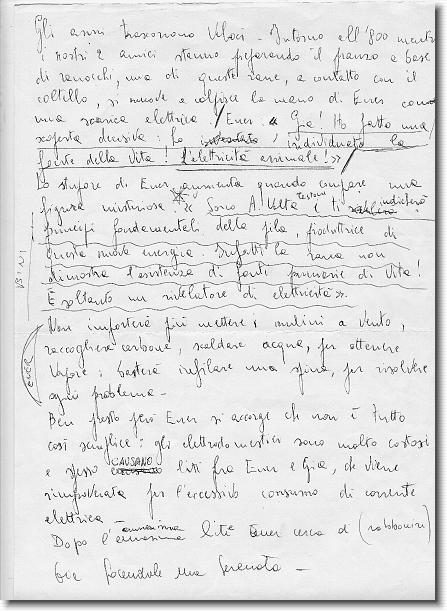 Gli anni trascorrono veloci - Intorno all'800 mentre
i nostri 2 amici stanno preparando il pranzo a base
di ranocchi, una di queste rane, a contatto con il
coltello, si muove e colpisce la mano di Ener come
una scarica elettrica! Ener: « Gia! Ho fatto una
scoperta decisiva: ho individuato la
fonte della Vita! L'elettricità animale! »
Lo stupore di Ener aumenta quando compare una
figura misteriosa: « Sono A. Volta e ti indicherò i
principi fondamentali della pila, produttrice di
questa nuova energia. Infatti la rana non
dimostra l'esistenza di fonti primarie di Vita!
È soltanto un rivelatore di elettricità ».
Non importerà più mettere i mulini a vento,
raccogliere carbone, scaldare acqua, per ottenere
vapore: basterà infilare una spina, per risolvere
ogni problema -
ENER
Ben presto però Ener si accorge che non è tutto
così semplice: gli elettrodomestici sono molto costosi
e spesso CAUSANO liti fra Ener e Gia, che viene
rimproverata per l'eccessivo consumo di corrente
elettrica -
Dopo l'ennesima lite Ener cerca di (rabbonire)
Gia facendole una serenata -